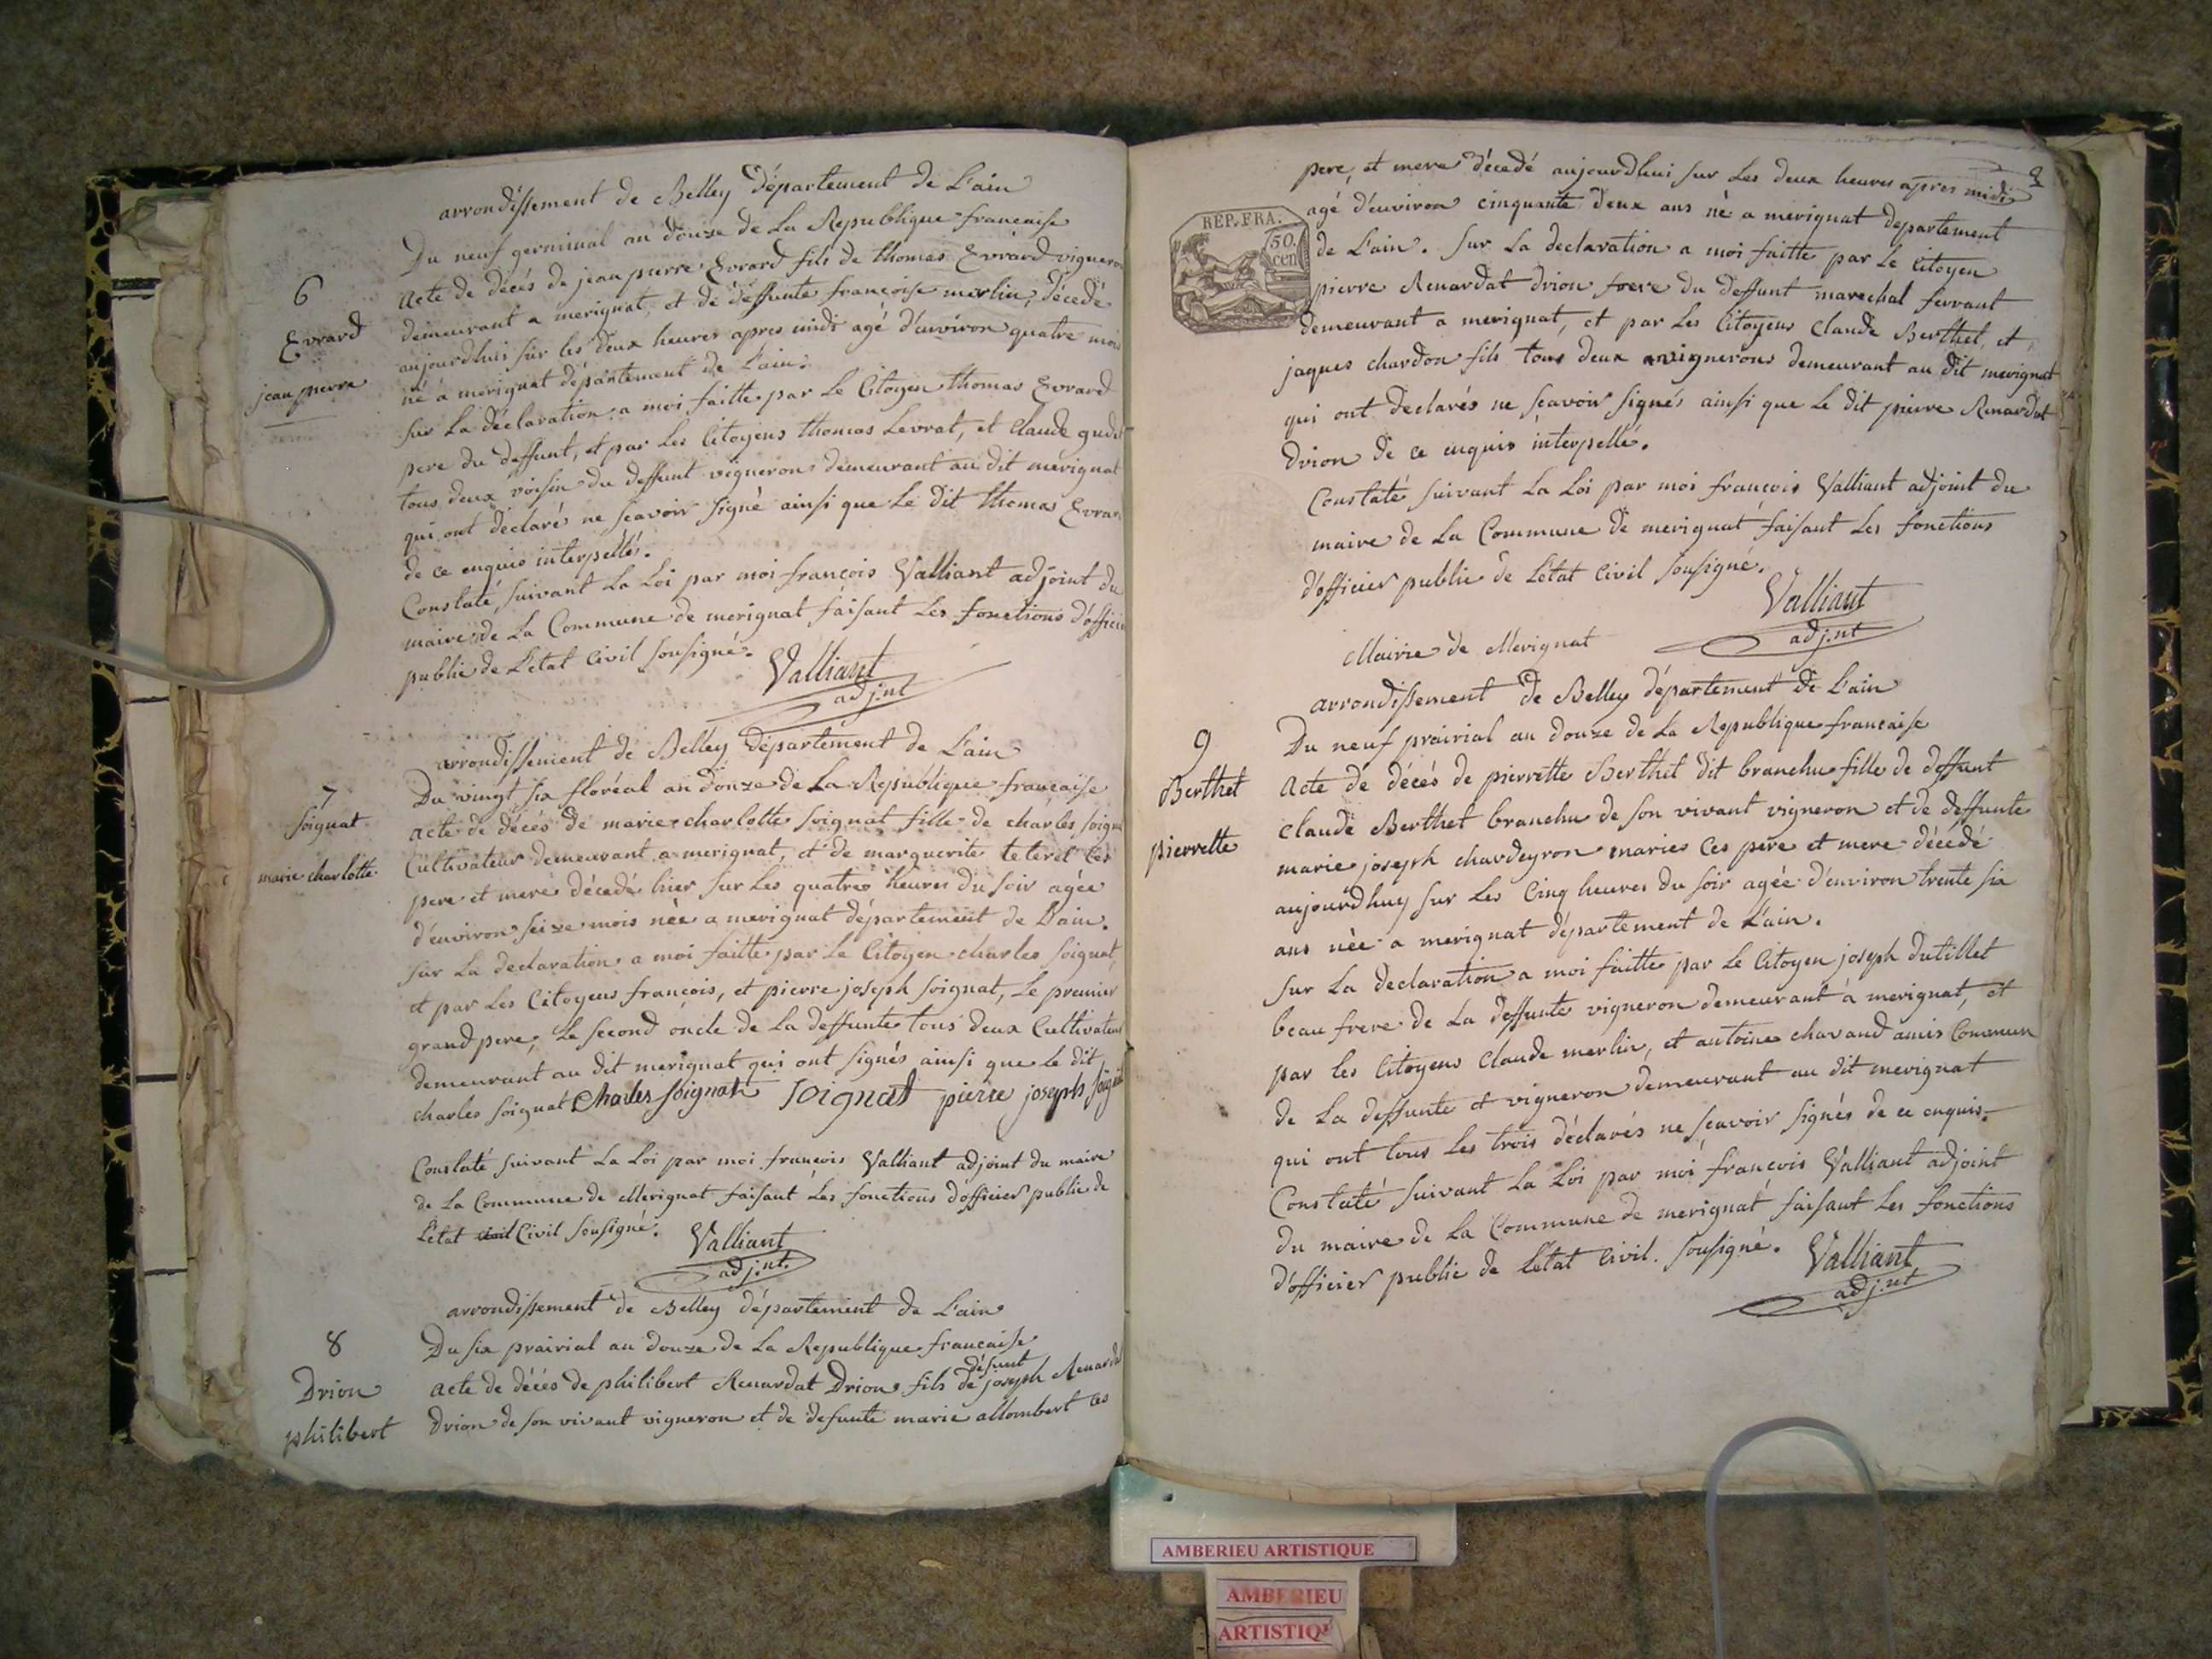 arrondissement de Belley département de L'ain
Du neuf germinal an douze de La Republique francaise
6
Evrard
jean pierre
acte de décés de jean pierre Evrard fils de thomas Evrard vigneron
demeurant a merignat, et de deffunte françoise merlin, décedé
aujourdhui sur les deux heures apres midi agé d'environ quatre mois
né a merignat département de L'ain.
sur La déclaration a moi faitte par Le Citoyen thomas Evrard
pere du deffunt, et par Les Citoyens thomas Levrat, et Claude
tous deux voisin du deffunt vignerons demeurant au dit merignat
qui ont declaré ne sçavoir signé ainsi que Le dit thomas Evrard
de ce enquis interpellés.
Constaté suivant La Loi par moi françois Valliant adjoint du
maire de La Commune de merignat faisant Les fonctions d'officier
public de L'etat Civil sousigné.
Valliant
adj.nt
arrondissement de Belley département de L'ain
7
soignat
marie charlotte
Du vingt six floréal an douze de La Republique française
acte de décés de marie charlotte soignat fille de charles soignat
Cultivateur demeurant a merignat, et de marguerite teteret Ces
pere et mere décedé hier sur Les quatres heures du soir agée
d'environ seize mois née a merignat département de L'ain.
sur La declaration a moi faitte par Le Citoyen charles soignat,
et par Les Citoyens francois, et pierre joseph soignat, Le premier
grand pere, Le second oncle de La deffunte tous deux Cultivateurs
demeurant au dit merignat qui ont signés ainsi que le dit
charles soignat Charles soignat soignat pierre joseph soignat
Constaté suivant La Loi par moi francois Valliant adjoint du maire
de La Commune de Merignat faisant Les fonctions d'officier public de
L'état Civil sousigné.
Valliant
adj.nt.
arrondissement de Belley département de L'ain
8
Drion
philibert
Du six prairial an douze de La Republique francaise
acte de décés de philibert Renardat Drion fils de défunt joseph Renardat
Drion de son vivant vigneron et de defunte marie allombert Ces
pere, et mere décedé aujourdhui sur Les deux heures apres midi
REP. FRA.
50. cen
agé d'environ cinquante deux ans né a merignat departement
de L'ain. sur La declaration a moi faitte par Le Citoyen
pierre Renardat drion frere du deffunt marechal ferrant
demeurant a merignat, et par Les Citoyens Claude Berthet, et
jaques chardon fils tous deux vignerons demeurant au dit merignat
qui ont declarés ne sçavoir signés ainsi que Le dit pierre Renardat
Drion de ce enquis interpellé.
Constaté suivant La Loi par moi francois Valliant adjoint du
maire de La Commune de merignat faisant Les fonctions
d'officier public de L'état Civil sousigné.
Valliant
adj.nt
Mairie de Merignat
arrondissement de Belley département de L'ain
9
Berthet
pierrette
Du neuf prairial an douze de La Republique francaise
Acte de décés de pierrette Berthet dit branchu fille de deffunt
Claude Berthet branchu de son vivant vigneron et de deffunte
marie joseph chardeyron maries Ces pere et mere décédé
aujourdhuy sur Les Cinq heures du soir agée d'environ trente six
ans née a merignat département de L'ain.
sur La declaration a moi faitte par Le Citoyen joseph dutillet
beau frere de La deffunte vigneron demeurant a merignat, et
par les Citoyens Claude merlin, et antoine chavand amis Commun
de La deffunte et vigneron demeurant au dit merignat
qui ont tous Les trois déclarés ne sçavoir signés de ce enquis.
Constaté suivant La Loi par moi francois Valliant adjoint
du maire de La Commune de merignat faisant Les fonctions
d'officier public de L'état Civil. sousigné.
Valliant
adj.nt
AMBERIEU ARTISTIQUE
AMBERIEU
ARTISTIQU